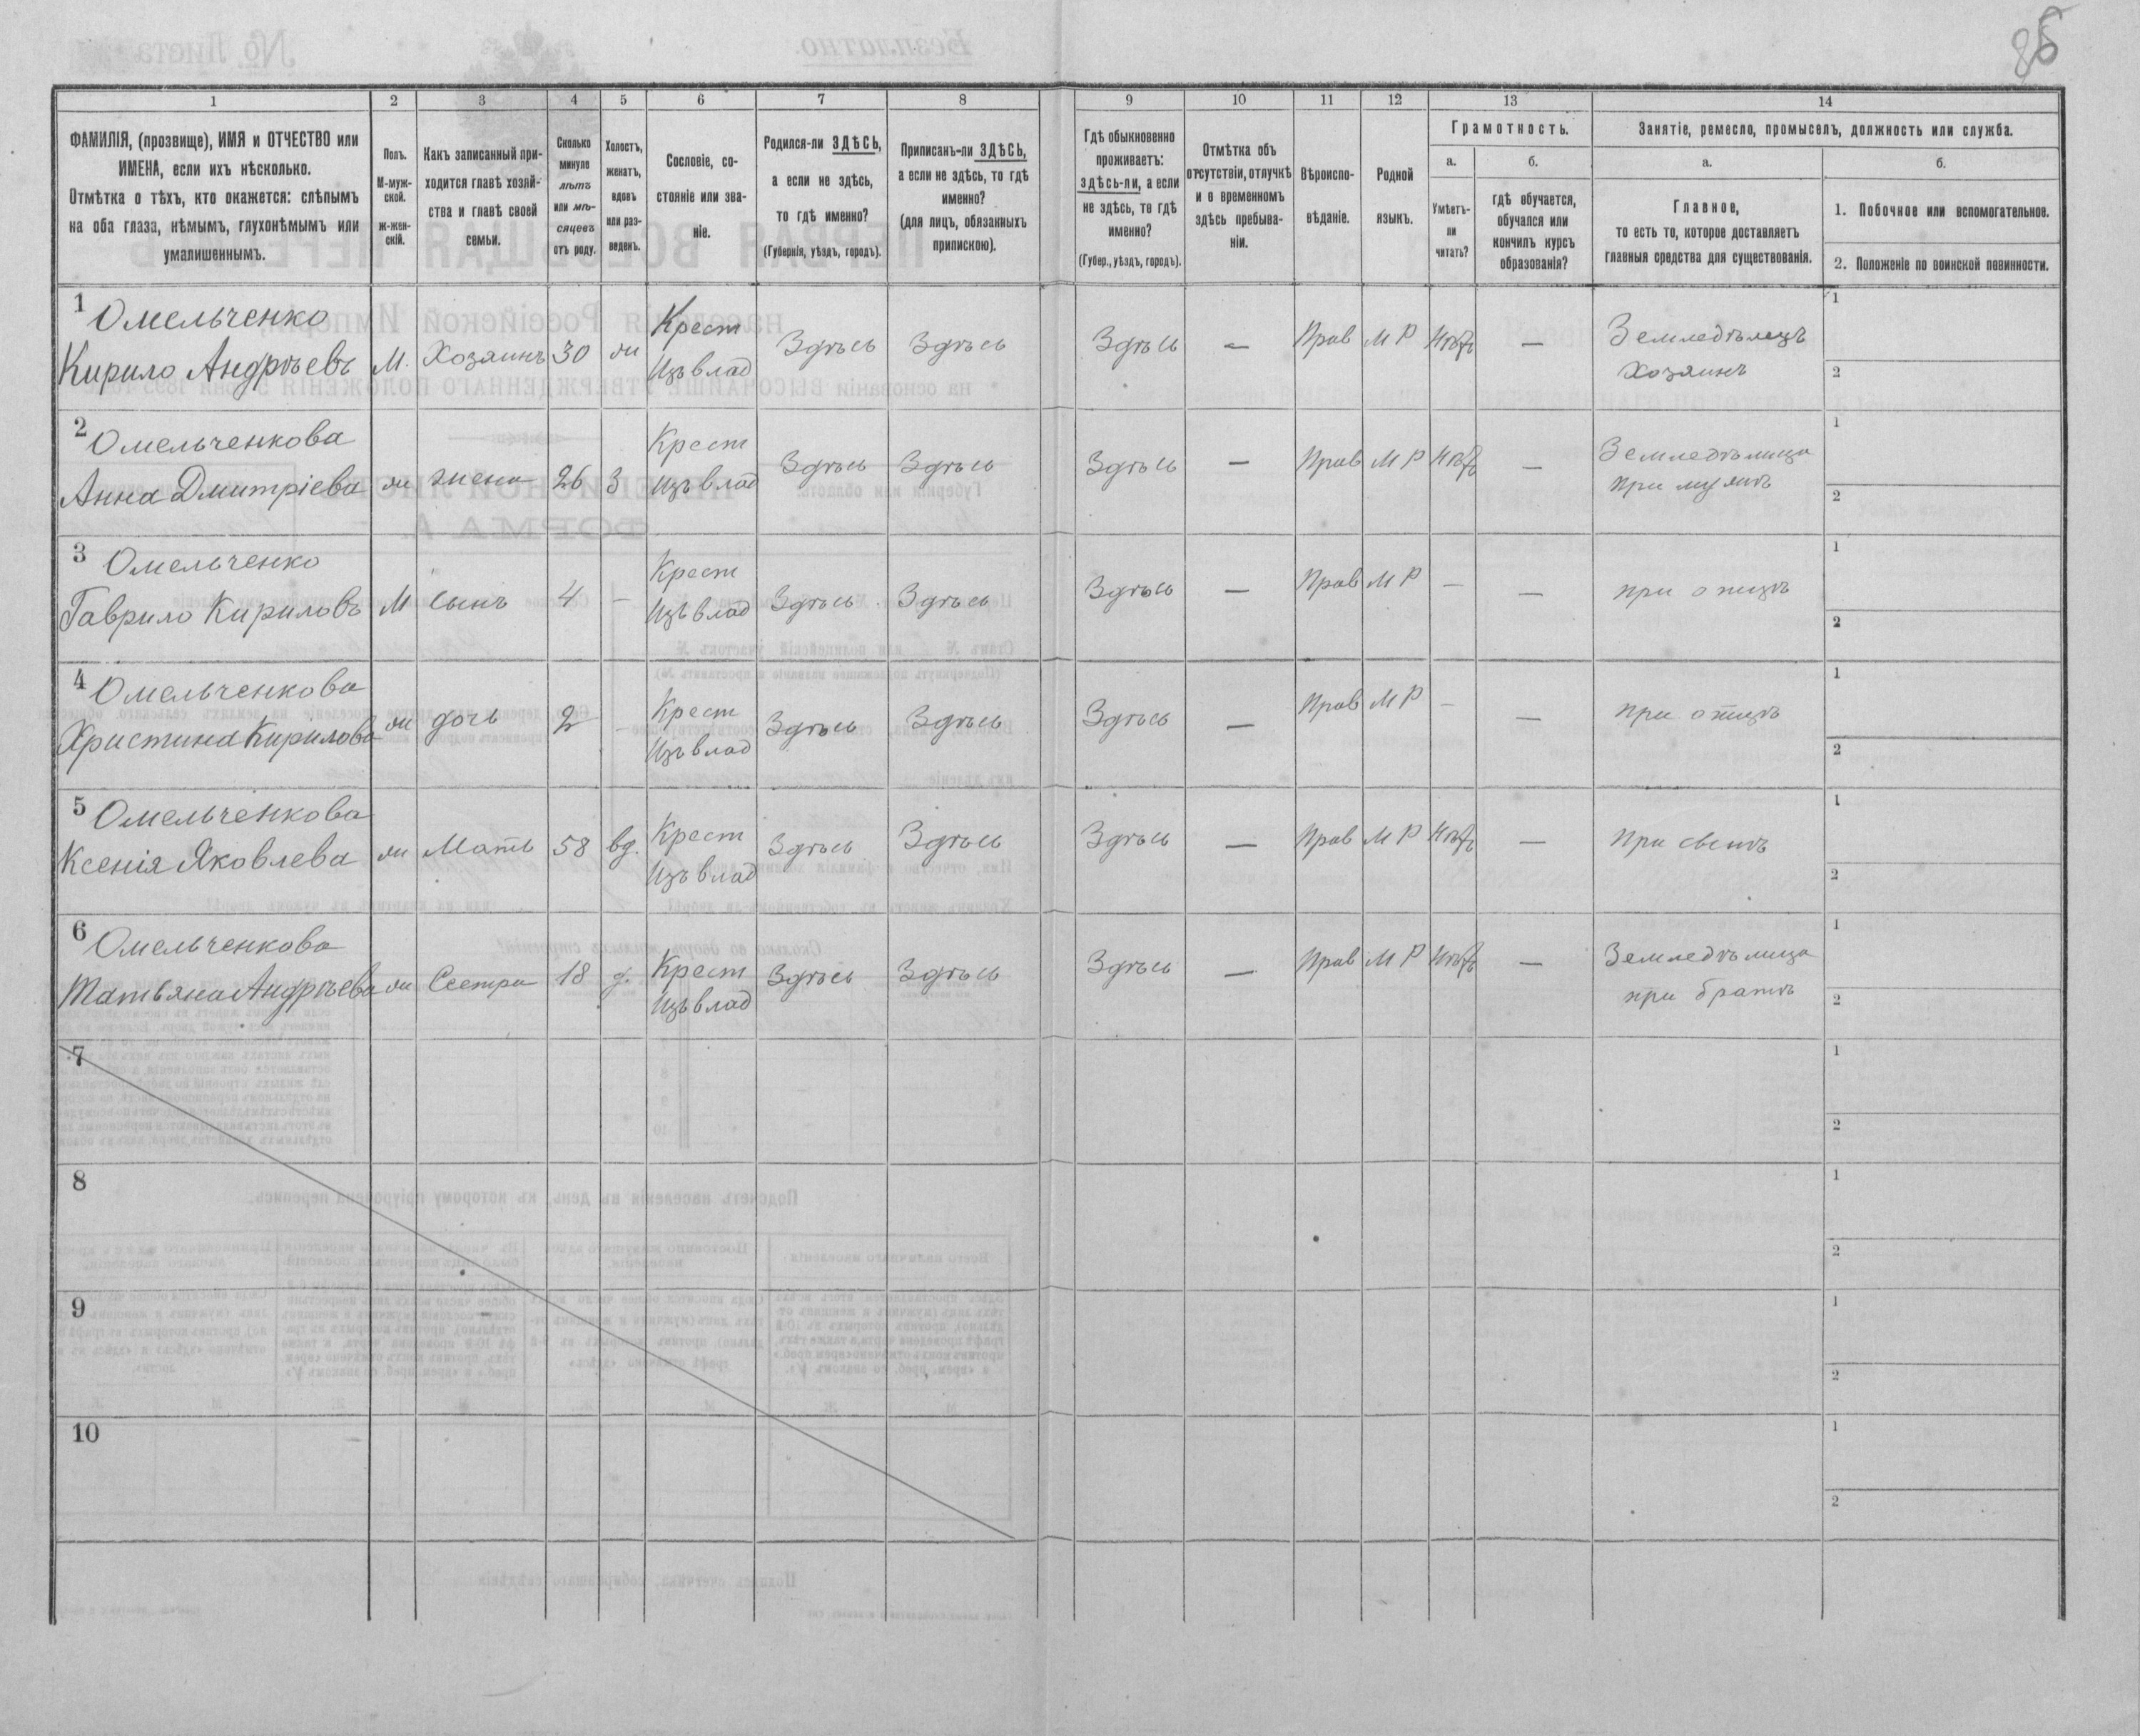 85
1 2 3 4 5 6 7 8 9 10 11 12 13 14
ФАМИЛІЯ, (прозвище), ИМЯ и ОТЧЕСТВО или
ИМЕНА, если ихъ нѣсколько.
Отмѣтка о тѣхъ, кто окажется: слѣпымъ
на оба глаза, нѣмымъ, глухонѣмымъ или
умалишеннымъ.
Полъ.
М-муж-
ской.
Ж-жен-
скій.
Какъ записанный при-
ходится главѣ хозяй-
ства и главѣ своей
семьи.
Сколько
минуло
лѣтъ
или мѣ-
сяцевъ
отъ роду.
Холостъ,
женатъ,
вдовъ
или раз-
веденъ.
Сословіе, со-
стояніе или зва-
ніе.
Родился-ли ЗДѢСЬ,
а если не здѣсь,
то гдѣ именно?
(Губернія, уѣздъ, городъ).
Приписанъ-ли ЗДѢСЬ,
а если не здѣсь, то гдѣ
именно?
(для лицъ, обязанныхъ
припискою).
Гдѣ обыкновенно
проживаетъ:
здѣсь-ли, а если
не здѣсь, то гдѣ
именно?
(Губер., уѣздъ, городъ).
Отмѣтка объ
отсутствіи, отлучкѣ
и о временномъ
здѣсь пребыва-
ніи.
Вѣроиспо-
вѣданіе.
Родной
языкъ.
Грамотность.
а.
Умѣетъ-
ли
читать?
б.
гдѣ обучается,
обучался или
кончилъ курсъ
образованія?
Занятіе, ремесло, промыселъ, должность или служба.
а.
Главное,
то есть то, которое доставляетъ
главныя средства для существованія.
б.
1. Побочное или вспомогательное.
2. Положеніе по воинской повинности.
1 Омельченко Крест 1
Кирило Андрѣевъ М. Хозяинъ 30 ж Изъ влад Здѣсь Здѣсь Здѣсь — Прав М Р Нѣтъ — Земледѣлецъ
Хозяинъ 2
2 Омельченкова Крест 1
Анна Дмитріева ж жена 26 З Изъ влад Здѣсь Здѣсь Здѣсь — Прав М Р Нѣтъ — Земледѣлица
при мужѣ 2
3 Омельченко Крест 1
Гаврило Кириловъ М сынъ 4 — Изъ влад Здѣсь Здѣсь Здѣсь — Прав М Р — — при отцѣ
2
4 Омельченкова Крест 1
Христина Кирилова ж дочь 2 — Изъ влад Здѣсь Здѣсь Здѣсь — Прав М Р — — при отцѣ
2
5 Омельченкова Крест 1
Ксенія Яковлева ж Мать 58 вд. Изъ влад Здѣсь Здѣсь Здѣсь — Прав М Р Нѣтъ — При сынѣ
2
6 Омельченкова Крест 1
Татьяна Андрѣева ж Сестра 18 д. Изъ влад Здѣсь Здѣсь Здѣсь — Прав М Р Нѣтъ — Земледѣлица
при братѣ 2
7 1
2
8 1
2
9 1
2
10 1
2